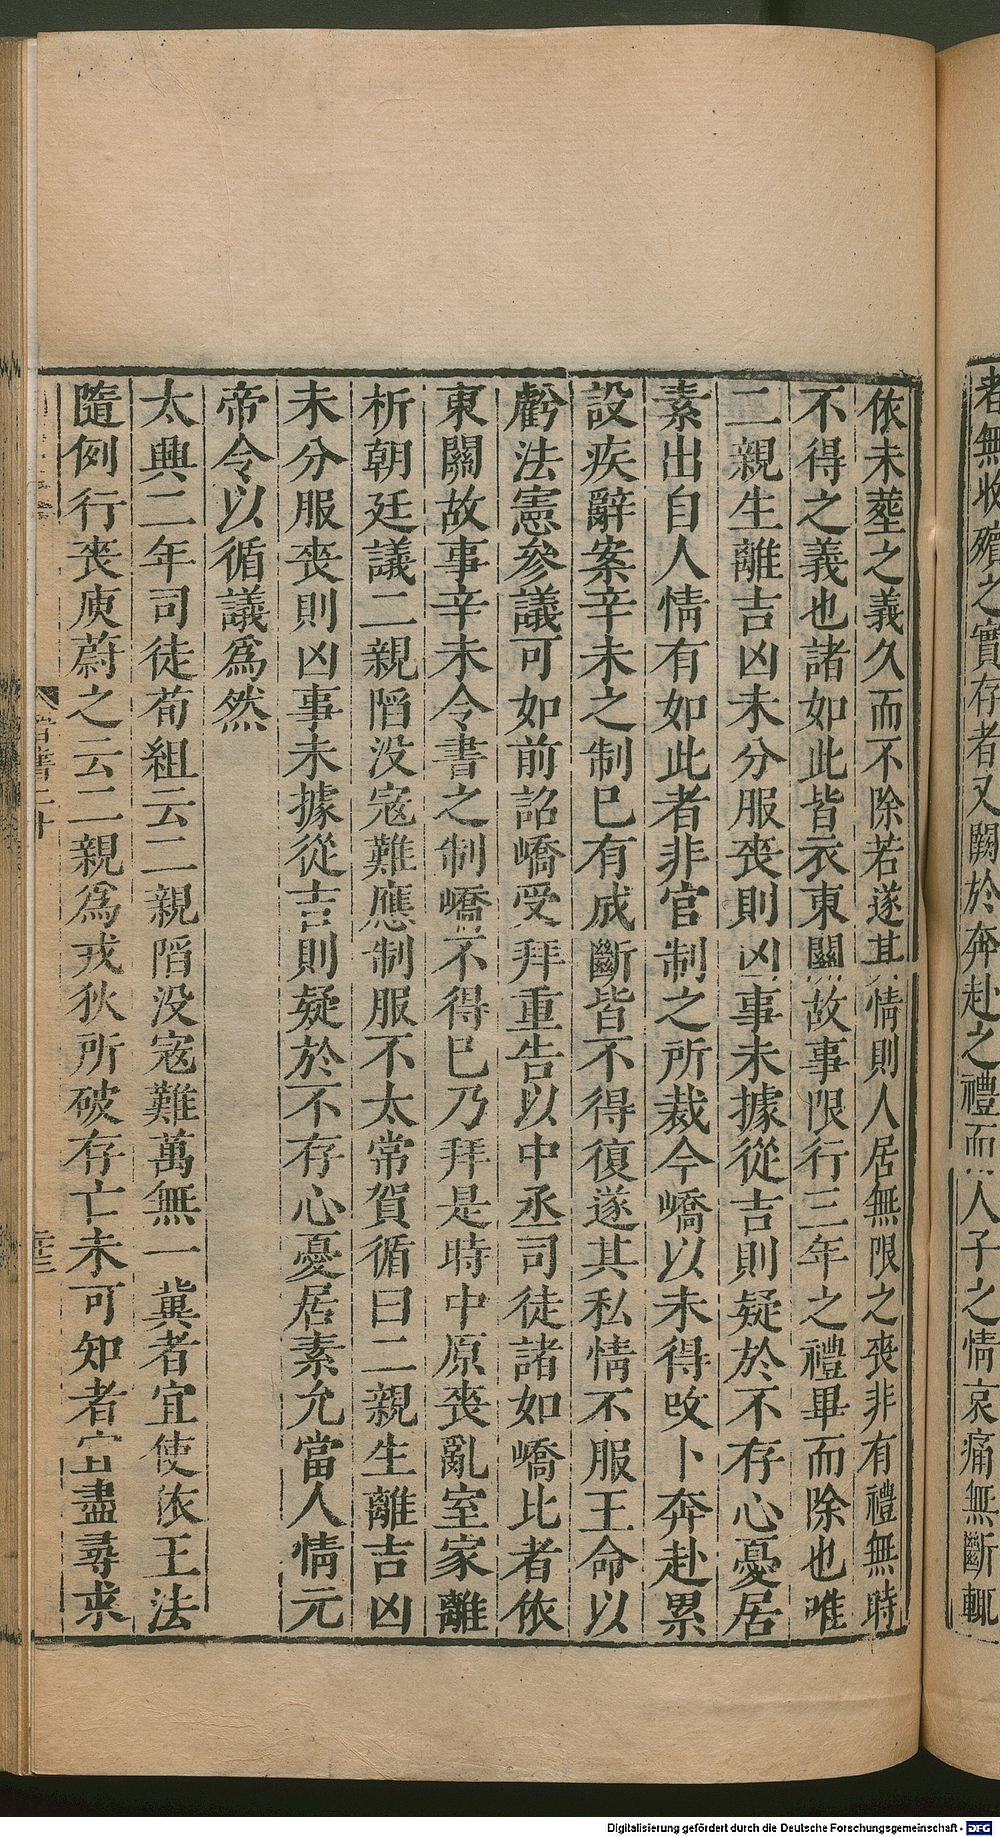 者無收殯之實存者又闕於奔赴之禮而人子之情哀痛無斷輒
依未塟之義久而不除若遂其情則人居無限之喪非有禮無時
不得之義也諸如此皆衣東關故事限行三年之禮畢而除也唯
二親生離吉凶未分服喪則凶事未據從吉則疑於不存心憂居
素出自人情有如此者非官制之所裁今嶠以未得攺卜奔赴累
設疾辭案辛未之制已有成斷皆不得復遂其私情不服王命以
虧法憲參議可如前詔嶠受拜重告以中丞司徒諸如嶠比者依
東關故事辛未令書之制嶠不得巳乃拜是時中原喪亂室家離
析朝廷議二親陷没寇難應制服不太常賀循曰二親生離吉凶
未分服喪則凶事未據從吉則疑於不存心憂居素允當人情元
帝令以循議爲然
太興二年司徒荀組云二親陷没寇難萬無一冀者宜使依王法
隨例行喪庾蔚之云二親爲戎狄所破存亡未可知者宜盡尋求
晉書二十
Digitalisierung gefördert durch die Deutsche Forschungsgemeinschaft - DFG